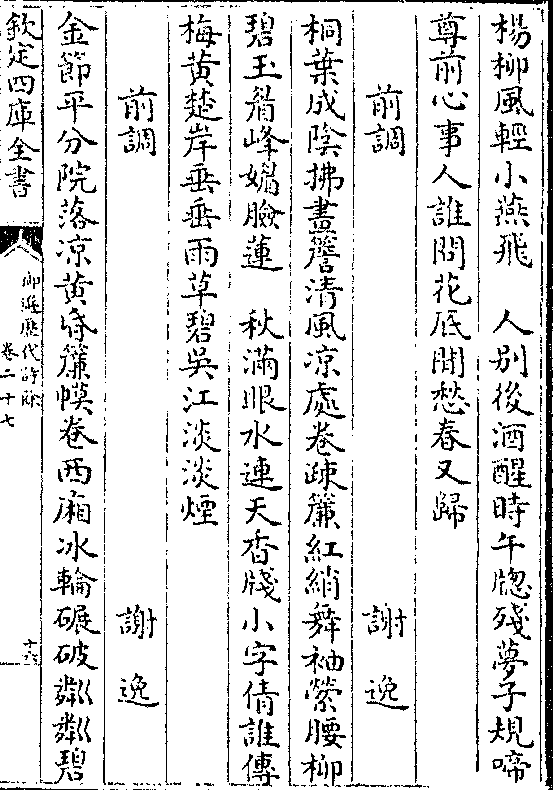 楊柳風輕小燕飛　人別後酒醒時午牎殘夢子規啼
尊前心事人誰問花底閒愁春又歸
前調　謝逸
桐葉成陰拂畫簷清風凉處卷疎簾紅綃舞袖縈腰柳
碧玉眉峰媚臉蓮　秋滿眼水連天香牋小字倩誰傳
梅黃楚岸垂垂雨草碧吳江淡淡煙
前調　謝逸
金節平分院落凉黃昏簾幙卷西廂冰輪碾破粼粼碧
欽定四庫全書
御選歷代詩餘
卷二十七
十六